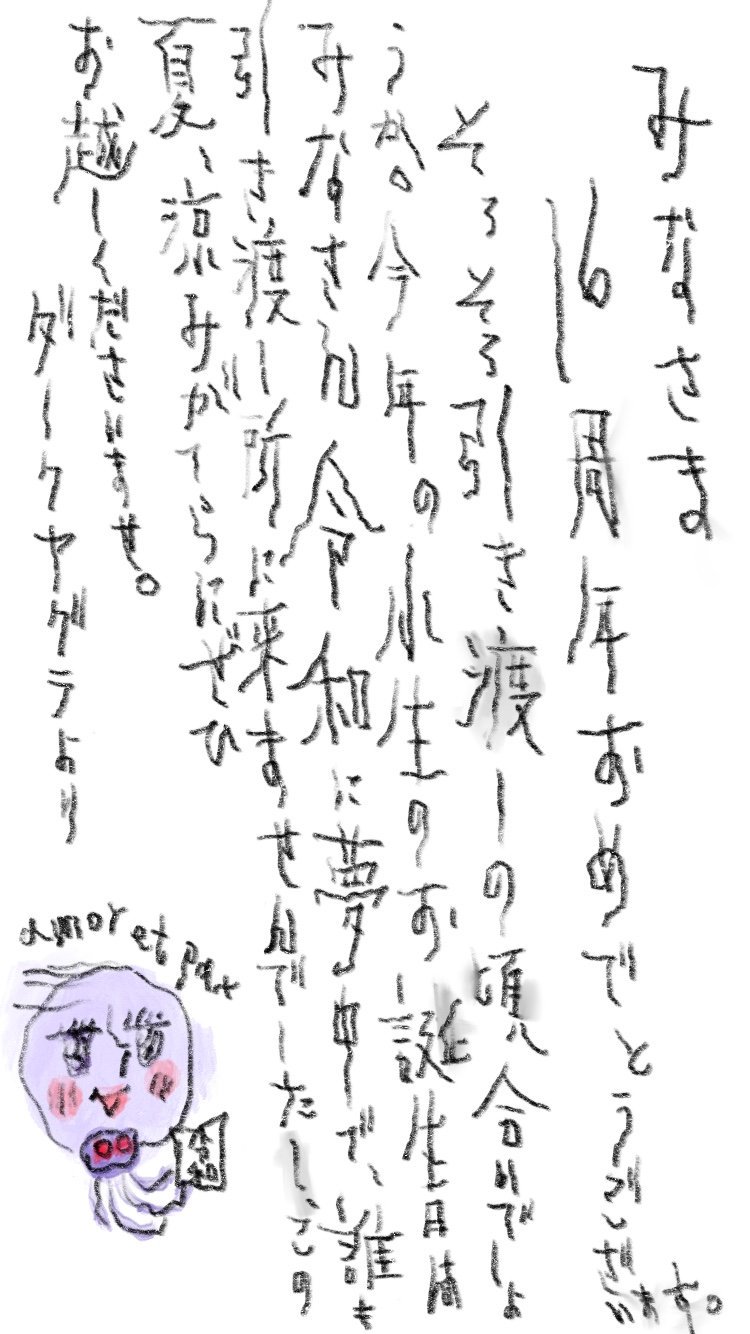 みなさま
16周年おめでとうございます。
そろそろ引き渡しの頃合いでしょ
うか。今年の水生のお誕生日は
みなさん令和に夢中で、誰も
引き渡し所に来ませんでした。この
夏、涼みがてらにぜひ
お越しくださいませ。
ダークヤグラより
amor et pax
令和